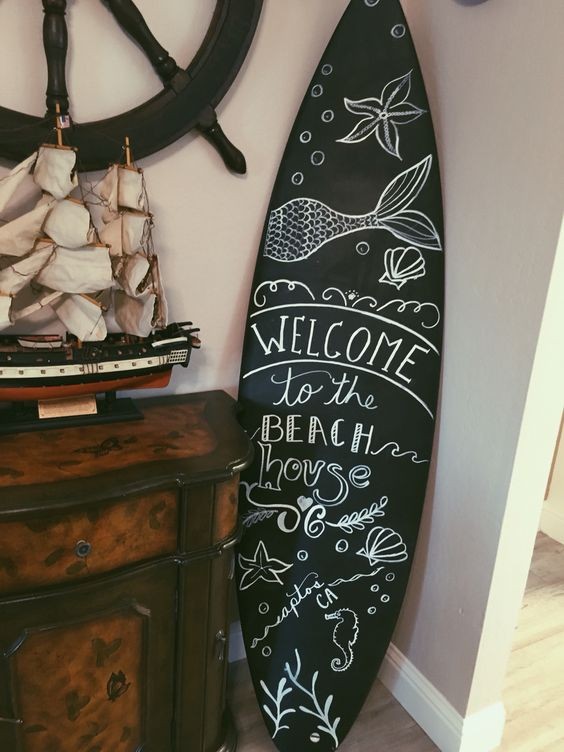 WELCOME
to the
BEACH
house
aptos
CA